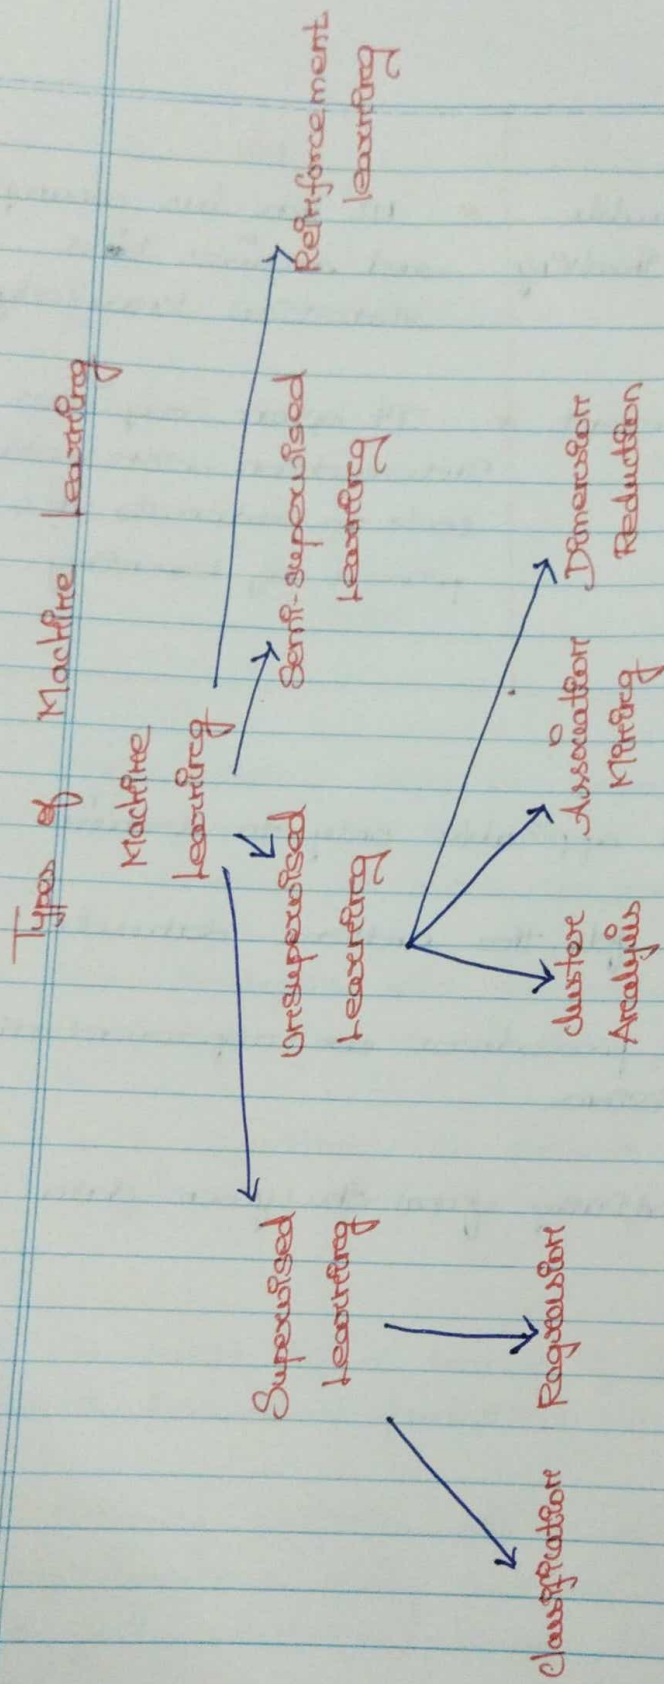 Types of Machine Learning
Machine
Learning
Supervised
Learning
Unsupervised
Learning
Semi-supervised
Learning
Reinforcement
learning
Classification
Regression
cluster
Analysis
Association
Mining
Dimension
Reduction